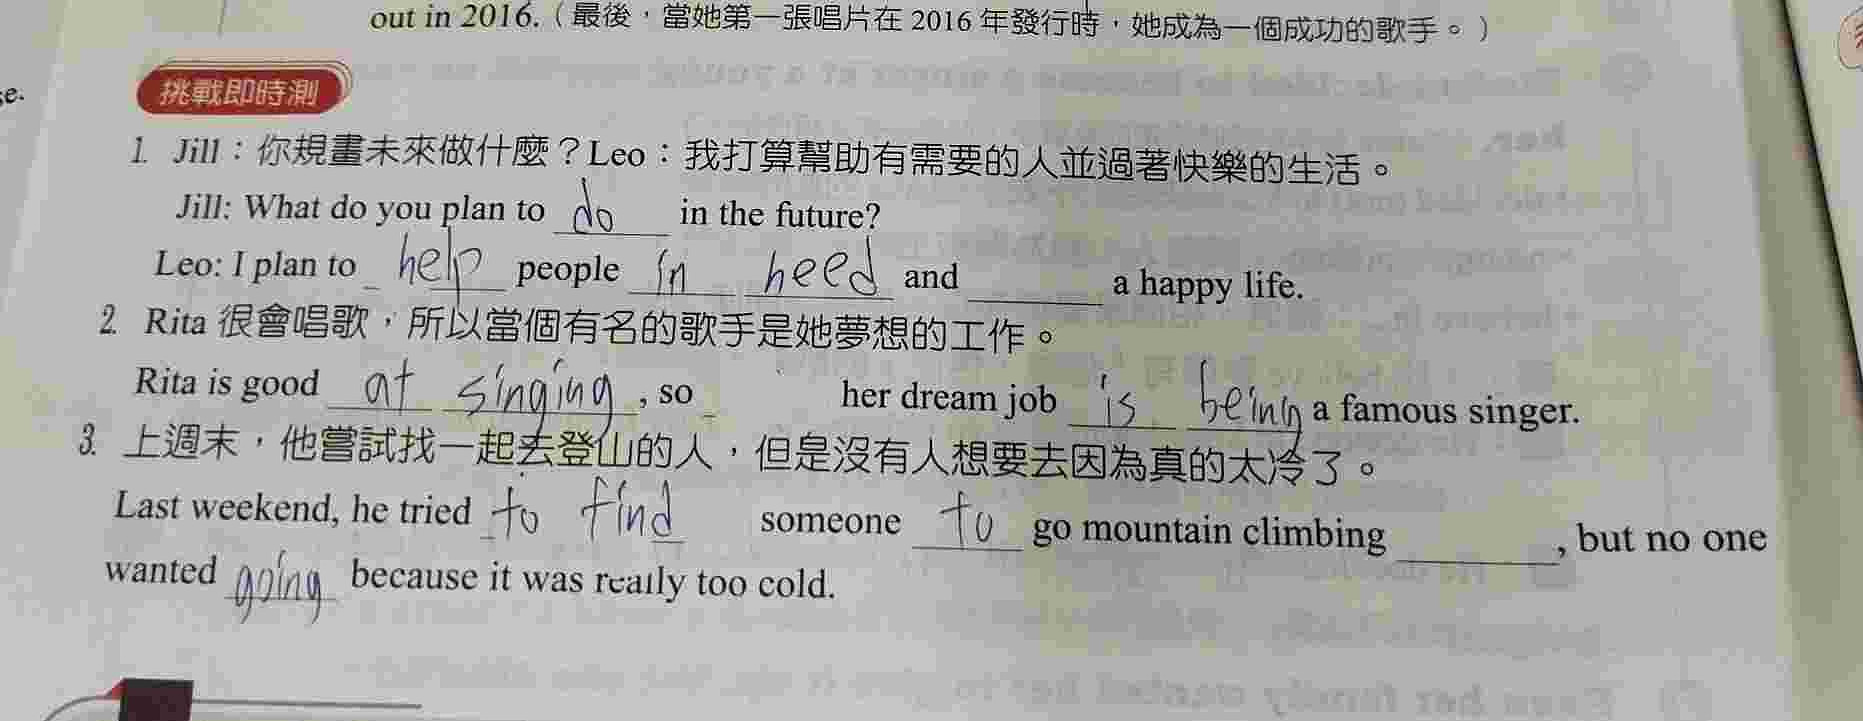 out in 2016.（最後，當她第一張唱片在 2016 年發行時，她成為一個成功的歌手。）
se.
挑戰即時測
1. Jill：你規畫未來做什麼？Leo：我打算幫助有需要的人並過著快樂的生活。
Jill: What do you plan to do in the future?
Leo: I plan to help people in need and ______ a happy life.
2. Rita 很會唱歌，所以當個有名的歌手是她夢想的工作。
Rita is good at singing, so _ her dream job is being a famous singer.
3. 上週末，他嘗試找一起去登山的人，但是沒有人想要去因為真的太冷了。
Last weekend, he tried to find someone to go mountain climbing ______, but no one
wanted going because it was really too cold.